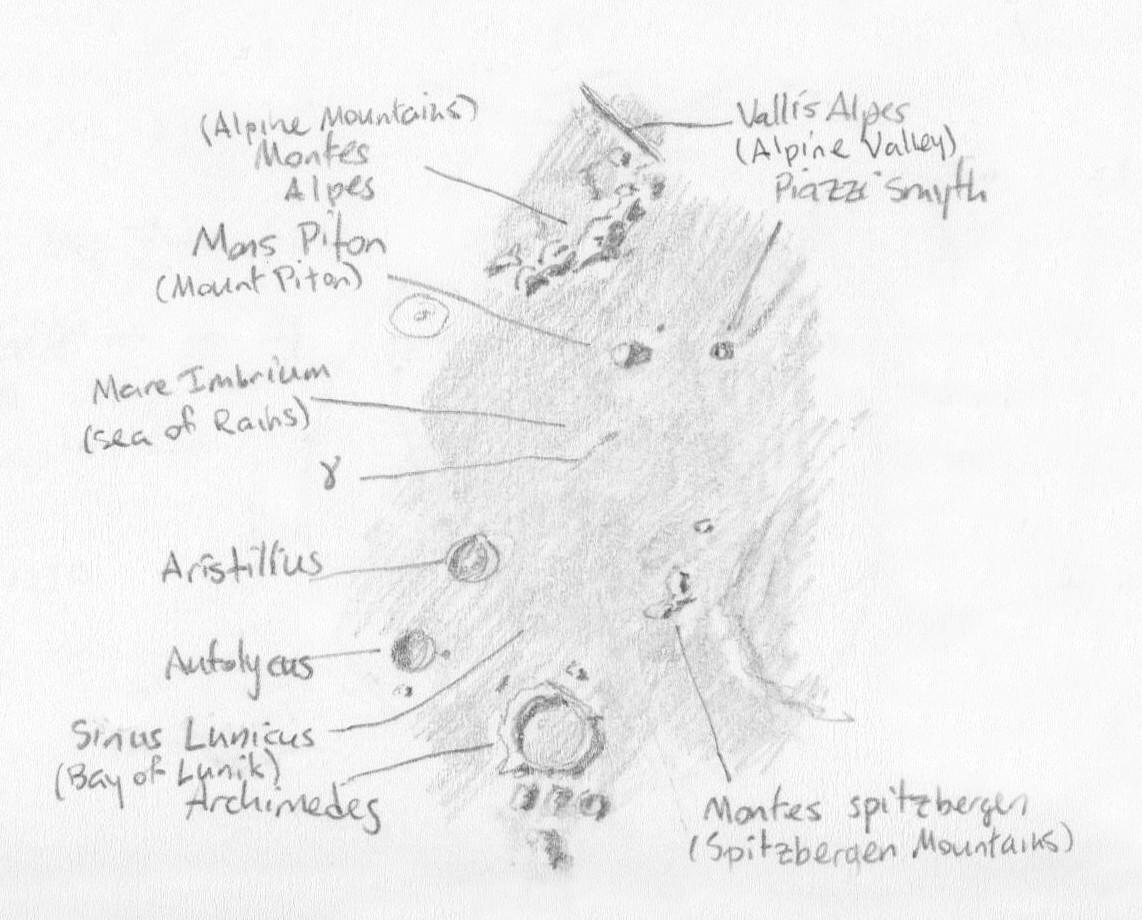 (Alpine Mountains)
Montes
Alpes
Vallis Alpes
(Alpine Valley)
Piazzi Smyth
Mons Piton
(Mount Piton)
Mare Imbrium
(Sea of Rains)
γ
Aristillus
Autolycus
Sinus Lunicus
(Bay of Lunik)
Archimedes
Montes spitzbergen
(Spitzbergen Mountains)